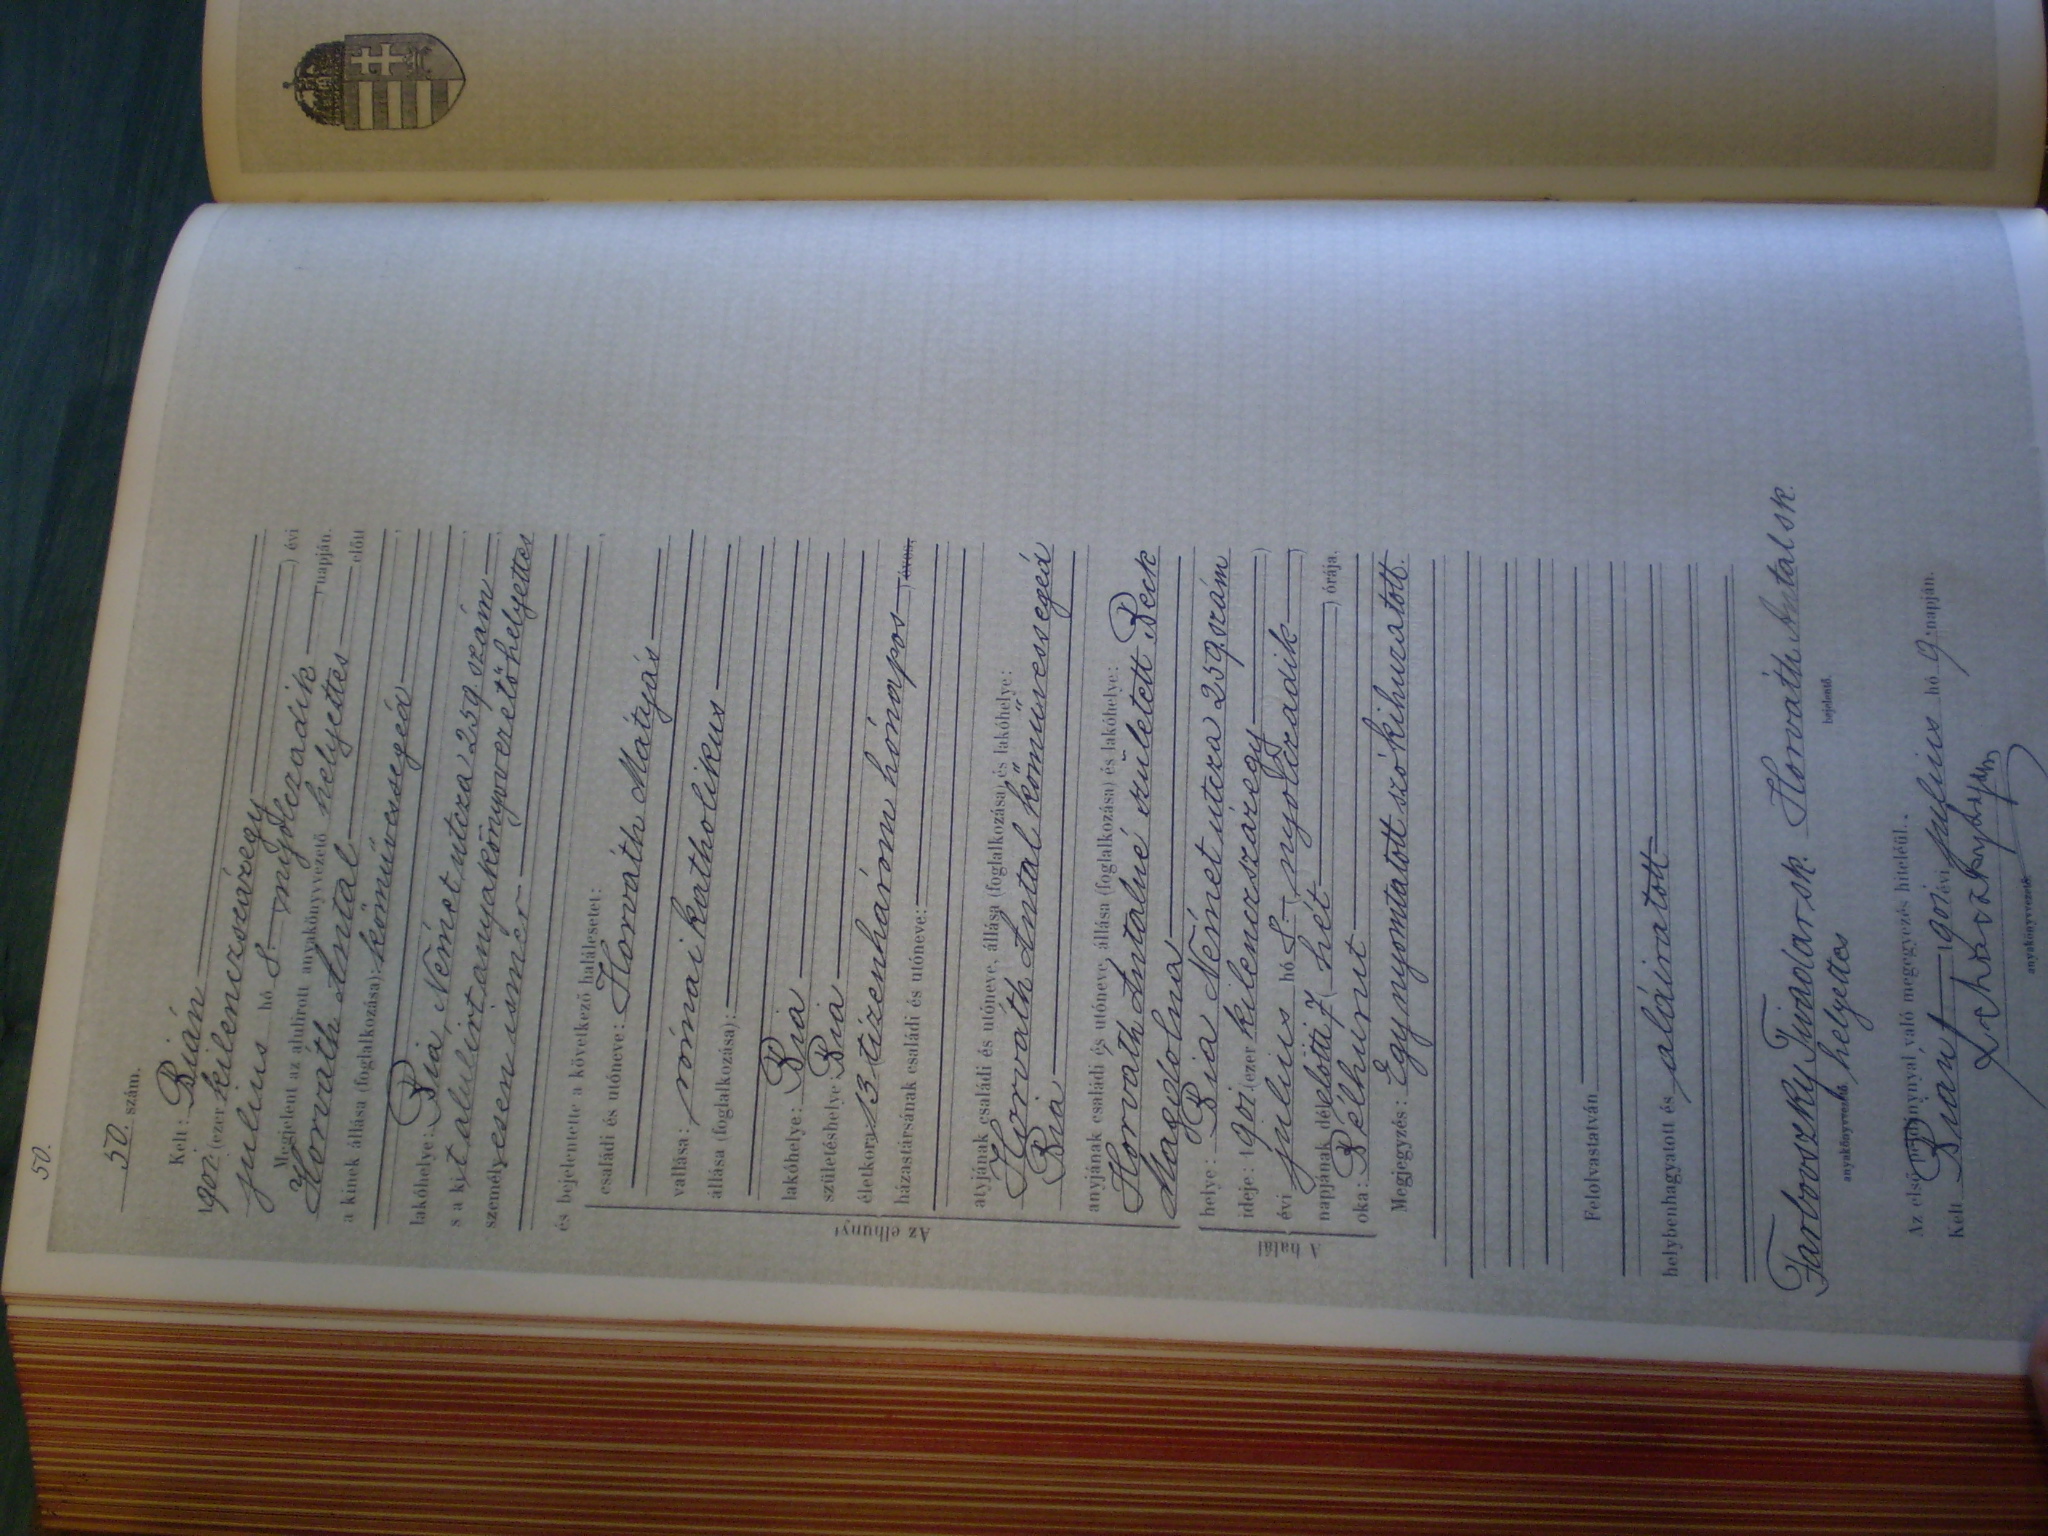 50.
50. szám.
Kelt: Bián
1901. (ezer kilenczszázegy) évi
julius hó 8. (nyolczadik) napján.
Megjelent az alulirott anyakönyvvezető helyettes előtt
Horváth Antal
a kinek állása (foglalkozása): kőművessegéd
lakóhelye: Bia, Német utcza 259 szám
s a kit alulirt anyakönyvvezető helyettes
személyesen ismer
és bejelentette a következő halálesetet:
Az elhunyt
családi és utóneve: Horváth Mátyás
vallása: római katholikus
állása (foglalkozása):
lakóhelye: Bia
születéshelye Bia
életkora 13 tizenhárom hónapos éves.
házastársának családi és utóneve:
atyjának családi és utóneve, állása (foglalkozása) és lakóhelye:
Horváth Antal kőművessegéd
Bia
anyjának családi és utóneve, állása (foglalkozása) és lakóhelye:
Horváth Antalné született Beck
Magdolna
A halál
helye: Bia Német utcza 259 szám
ideje: 1901. (ezer kilenczszázegy)
évi julius hó 8. (nyolczadik)
napjának dél előtti 7 (hét) órája.
oka: Bélhurut
Megjegyzés: Egy nyomtatott szó kihuzatott.
Felolvastatván
helybenhagyatott és aláiratott
Tivadar sk. Horváth Antal sk.
helyettes
anyakönyvvezető bejelentő.
Az első példánynyal való megegyezés hiteléül.
Kelt Bian 1901. évi julius hó 9. napján.
anyakönyvvezető